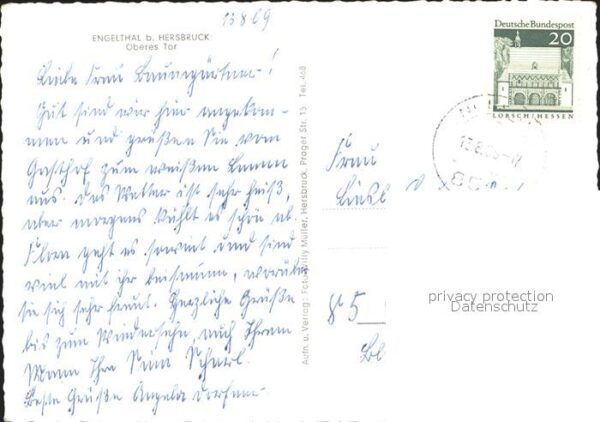 13.8.69
ENGELTHAL b. HERSBRUCK
Oberes Tor
Liebe Frau Baumgärtner!
Gut sind wir hier angekom-
men und grüßen Sie vom
Gasthof zum weißen Lamm
aus. Das Wetter ist sehr heiß,
aber morgens kühlt es schön ab.
geht es soweit und sind
viel mit ihr beisammen, worüber
sie sich sehr freut. Herzliche Grüße
bis zum Wiedersehn, auch Ihrem
Mann Ihre
Beste Grüße Angela
Auth u. Verlag: Foto Willy Müller, Hersbruck, Prager Str. 15 Tel. 468
Deutsche Bundespost
20
LORSCH/HESSEN
Frau
85
privacy protection
Datenschutz